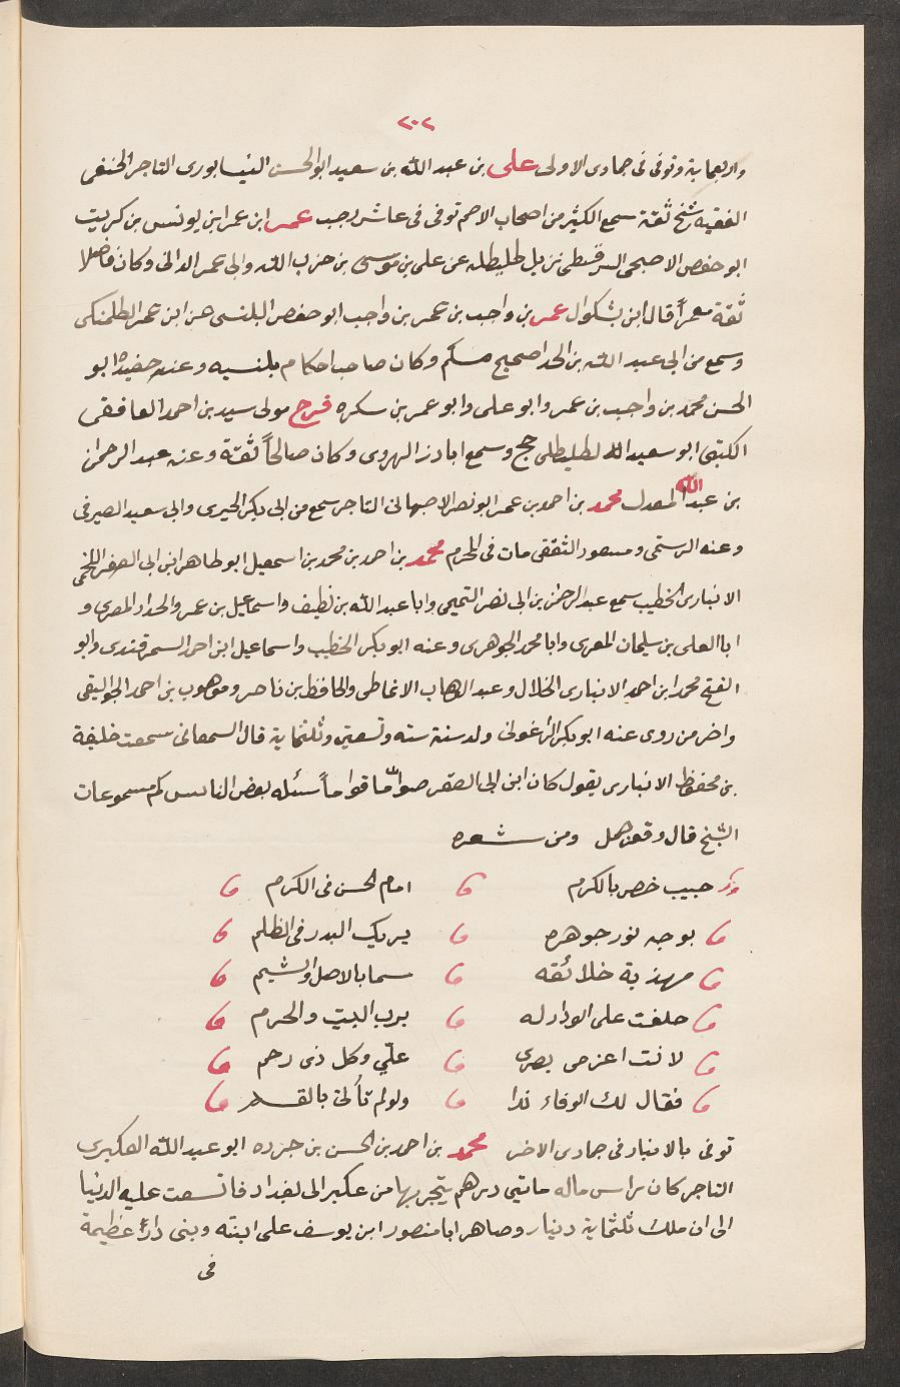 ٢٠٢
واربعماية وتوفى فى جمادى الاولى على بن عبد الله بن سعيد ابو الحسن النيسابورى التاجر الحنفى
الفقيه شيخ ثقة سمع الكثير من اصحاب الاصم توفى فى عاشر رجب عمر ابن عمر ابن يونس بن كريب
ابو حفص الاصبحى السرقسطى نزيل طليطله عن على بن موسى بن حزب الله وابى عمر الدانى وكان فاضلا
ثقة معمراً قال ابن بشكوال عمر بن واجب بن عمر بن واجب ابو حفص البلنسى عن ابن عمر الطلمنكى
وسمع من ابى عبد الله بن الحدا صحيح مسلم وكان صاحب احكام بلنسيه وعنه حفيده ابو
الحسن محمد بن واجب بن عمر وابو على وابو عمر بن سكره فرج مولى سيد بن احمد الغافقى
الكتبى ابو سعيد الطليطلى حج وسمع ابا ذر الهروى وكان صالحاً ثقة وعنه عبد الرحمن
بن عبد الله المعدل محمد بن احمد بن عمر ابو نصر الاصبهانى التاجر سمع من ابى بكر الحيرى وابى سعيد الصيرفى
وعنه الرستمى ومسعود الثقفى مات فى المحرم محمد بن احمد بن محمد بن اسمعيل ابو طاهر ابن ابى الصقر اللخمى
الانبارى الخطيب سمع عبد الرحمن بن ابى نصر التميمى وابا عبد الله بن نظيف واسماعيل بن عمر والحداد المصرى و
ابا العلى بن سليمان المعرى وابا محمد الجوهرى وعنه ابو بكر الخطيب واسماعيل ابن احمد السمرقندى وابو
الفتح محمد ابن احمد الانبارى الخلال وعبد الوهاب الانماطى والحافظ بن ناصر وموهوب بن احمد الجواليقى
واخر من روى عنه ابو بكر الزغونى ولد سنة سته وتسعين وثلثماية قال السمعانى سمعت خليفة
بن محفوظ الانبارى يقول كان ابن ابى الصقر صواما قواماً سئله بعض الناس كم مسموعات
الشيخ قال وقر جمل ومن شعره
حبيب خص بالكرم امام الحسن فى الكرم
بوجه نور جوهره يريك البدر فى الظلم
مهذبة خلائقه سما بالاصل والشيم
حلفت على الوداد له برب البيت والحرم
لانت اعز من بصرى علىّ وكل ذى رحم
فقال لك الوفاء ندا ولو لم تأُلنى بالقسم
توفى بالانبار فى جمادى الاخر محمد بن احمد بن الحسن بن جرده ابو عبد الله العكبرى
التاجر كان راس ماله مائتى درهم يتجر بها من عكبرا لى بغداد فاتسعت عليه الدنيا
الى ان ملك ثلثماية دينار وصاهر ابا منصور ابن يوسف على ابنته وبنى داراً عظيمة
فى